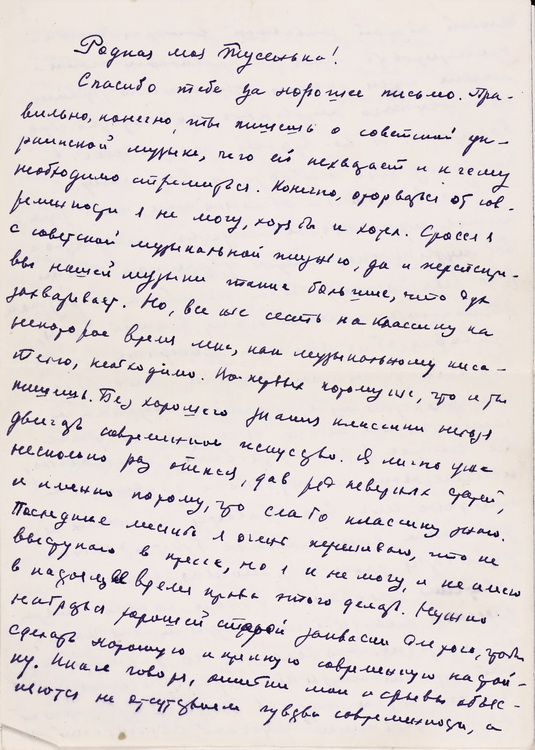 Родная моя Тусенька!
Спасибо тебе за хорошее письмо. Пра-
вильно, конечно, ты пишешь о советской ук-
раинской музыке, чего ей нехватает и к чему
необходимо стремиться. Конечно, оторваться от сов-
ременности я не могу, хотя бы и хотел. Сросся я
с советской музыкальной жизнью, да и перспекти-
вы нашей музыки такие большие, что дух
захватывает. Но, все же сесть на классику на
некоторое время мне, как музыкальному писа-
телю, необходимо. Во-первых потому же, что и ты
пишешь. Без хорошего знания классики нельзя
двигать современное искусство. Я лично уже
несколько раз отекся, дав ряд неверных статей,
и именно потому, что слабо классику знаю.
Последние месяцы я очень переживаю, что не
выступаю в прессе, но я и не могу, и не имею
в настоящее время права этого делать. Нужно
набраться хорошей старой закваски для того, чтобы
сделать хорошую и крепкую современную настой-
ку. Иначе говоря, ошибки мои и срывы объяс-
няются не отсутствием чувства современности, а